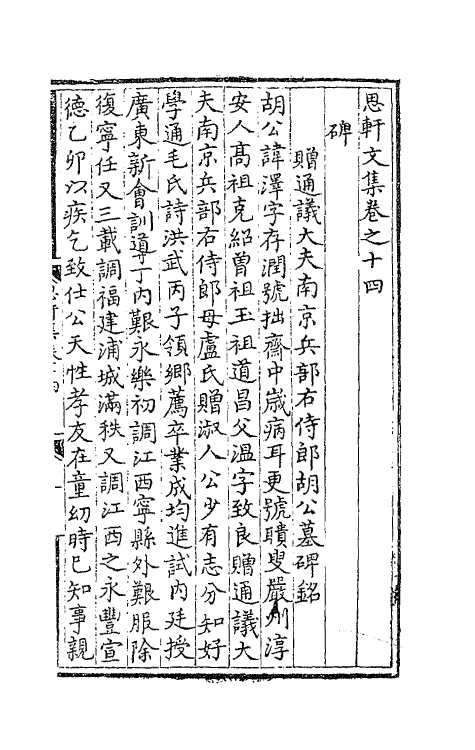 思軒文集卷之十四
碑
贈通議大夫南京兵部右侍郎胡公墓碑銘
胡公諱澤字存潤號拙齋中歲病耳更號聵叟嚴州淳
安人髙祖克紹曽祖玉祖道昌父温字致良贈通議大
夫南京兵部右侍郎母盧氏贈淑人公少有志分知好
學通毛氏詩洪武丙子領鄉薦卒業成均進試内廷授
廣東新會訓導丁内艱永樂初調江西寧縣外艱服除
復寧任又三載調福建浦城滿秩又調江西之永豐宣
德乙夘以疾乞致仕公天性孝友在童幼時已知事親